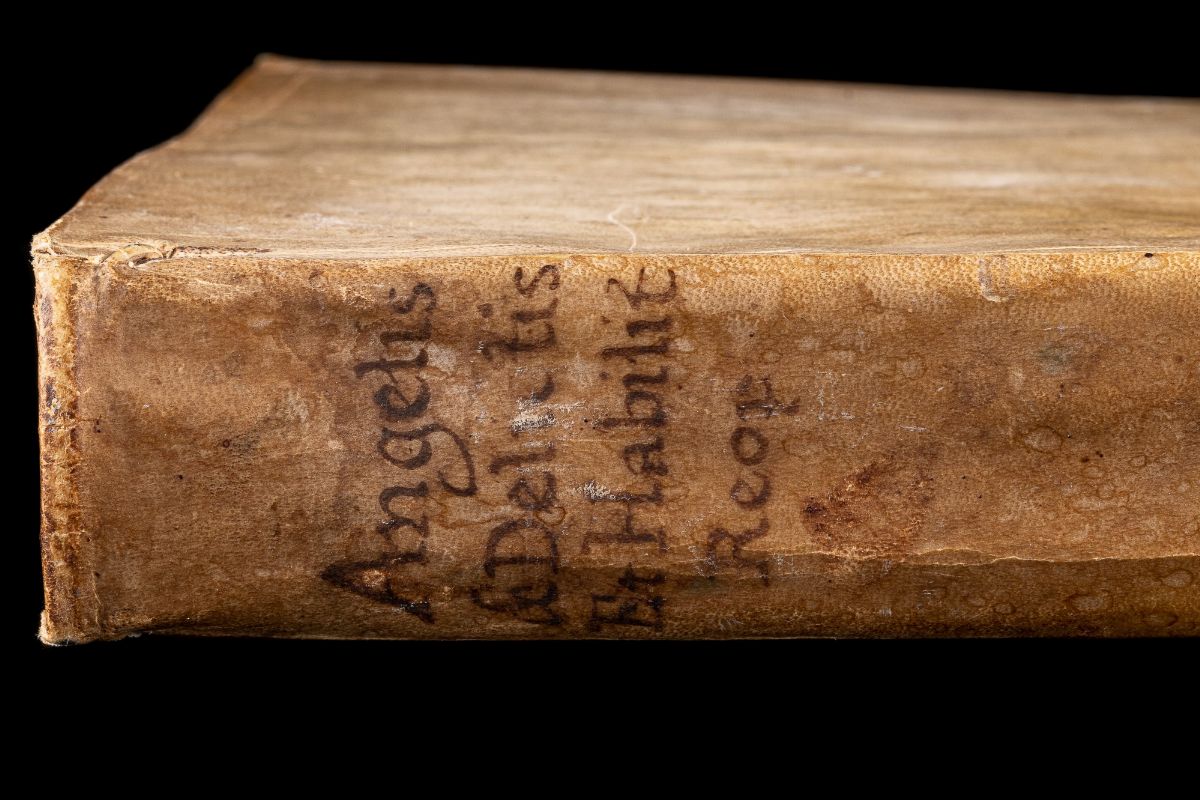 Angelis
de Delictis
Et Habilit
Reor